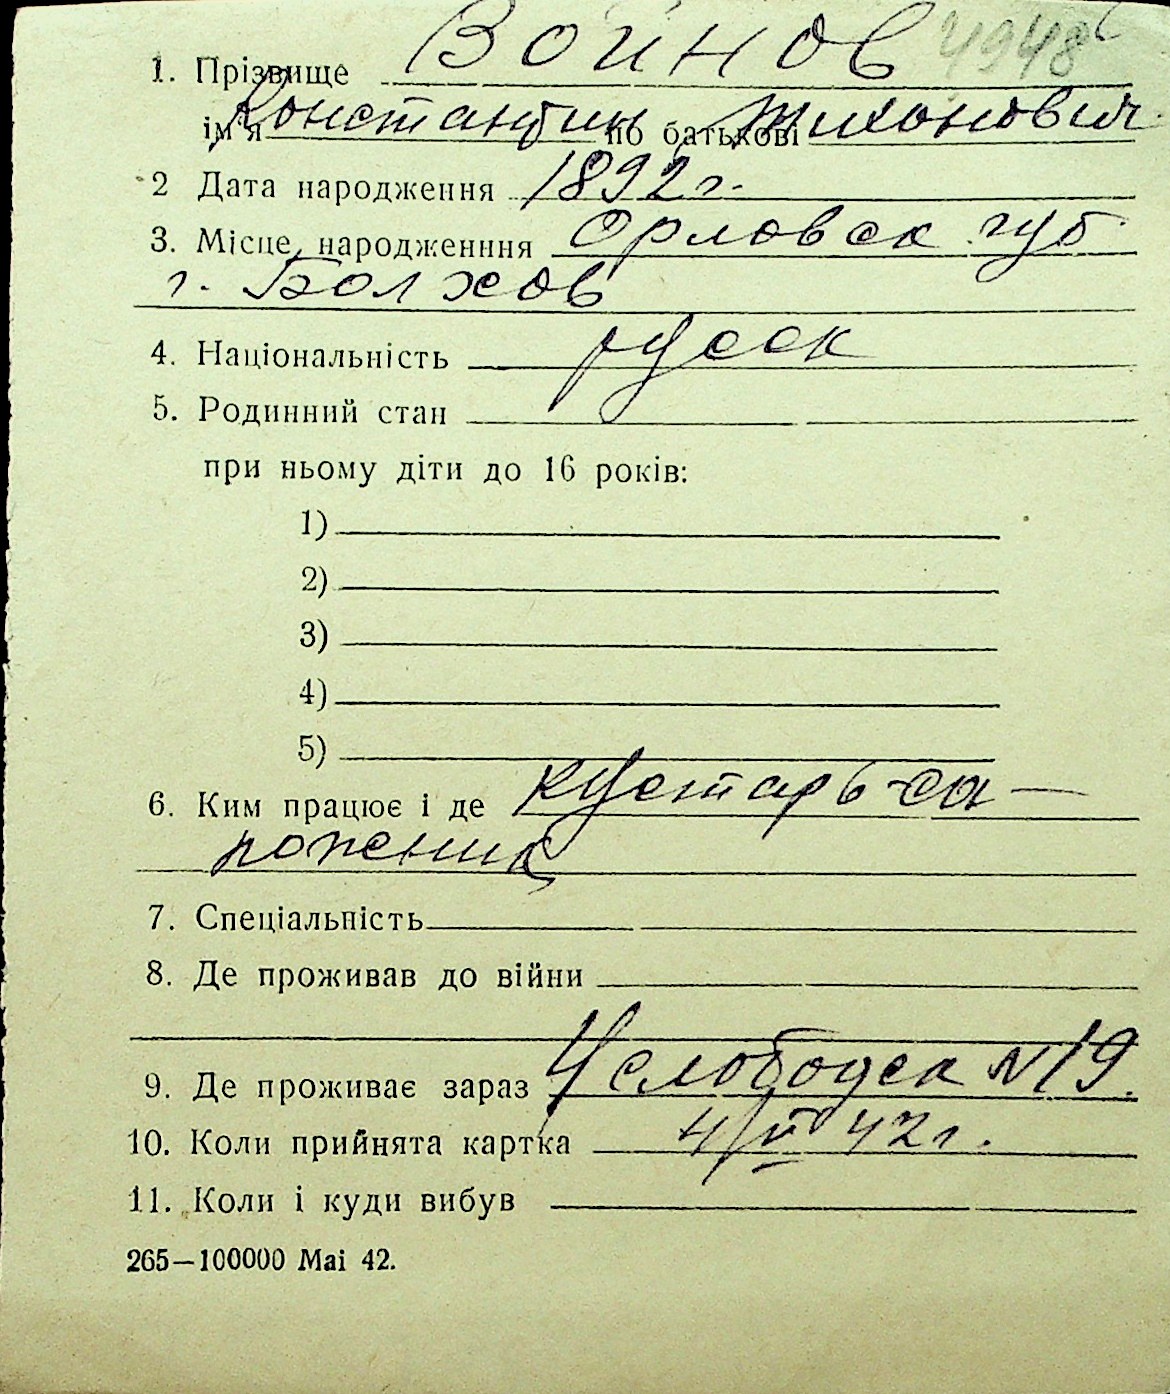 1. Прізвище Войнов 4948
ім'я Константин по батькові Тихонович
2 Дата народження 1892 г.
3. Місце народженння Орловск губ
г. Болхов
4. Національність русск
5. Родинний стан
при ньому діти до 16 років:
1)
2)
3)
4)
5)
6. Ким працює і де кустарь са—
пожник
7. Спеціальність
8. Де проживав до війни
9. Де проживає зараз Услободск N 19.
10. Коли прийнята картка 4/VI 42 г.
11. Коли і куди вибув
265—100000 Mai 42.